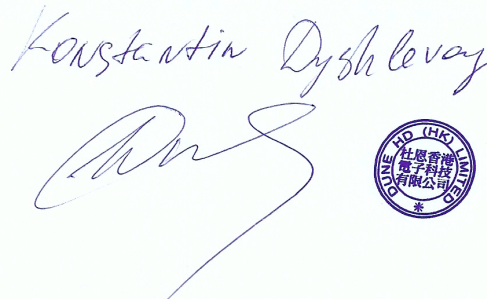 Konstantin Dyshlevoy
DUNE HD (HK) LIMITED
杜恩香港
電子科技
有限公司